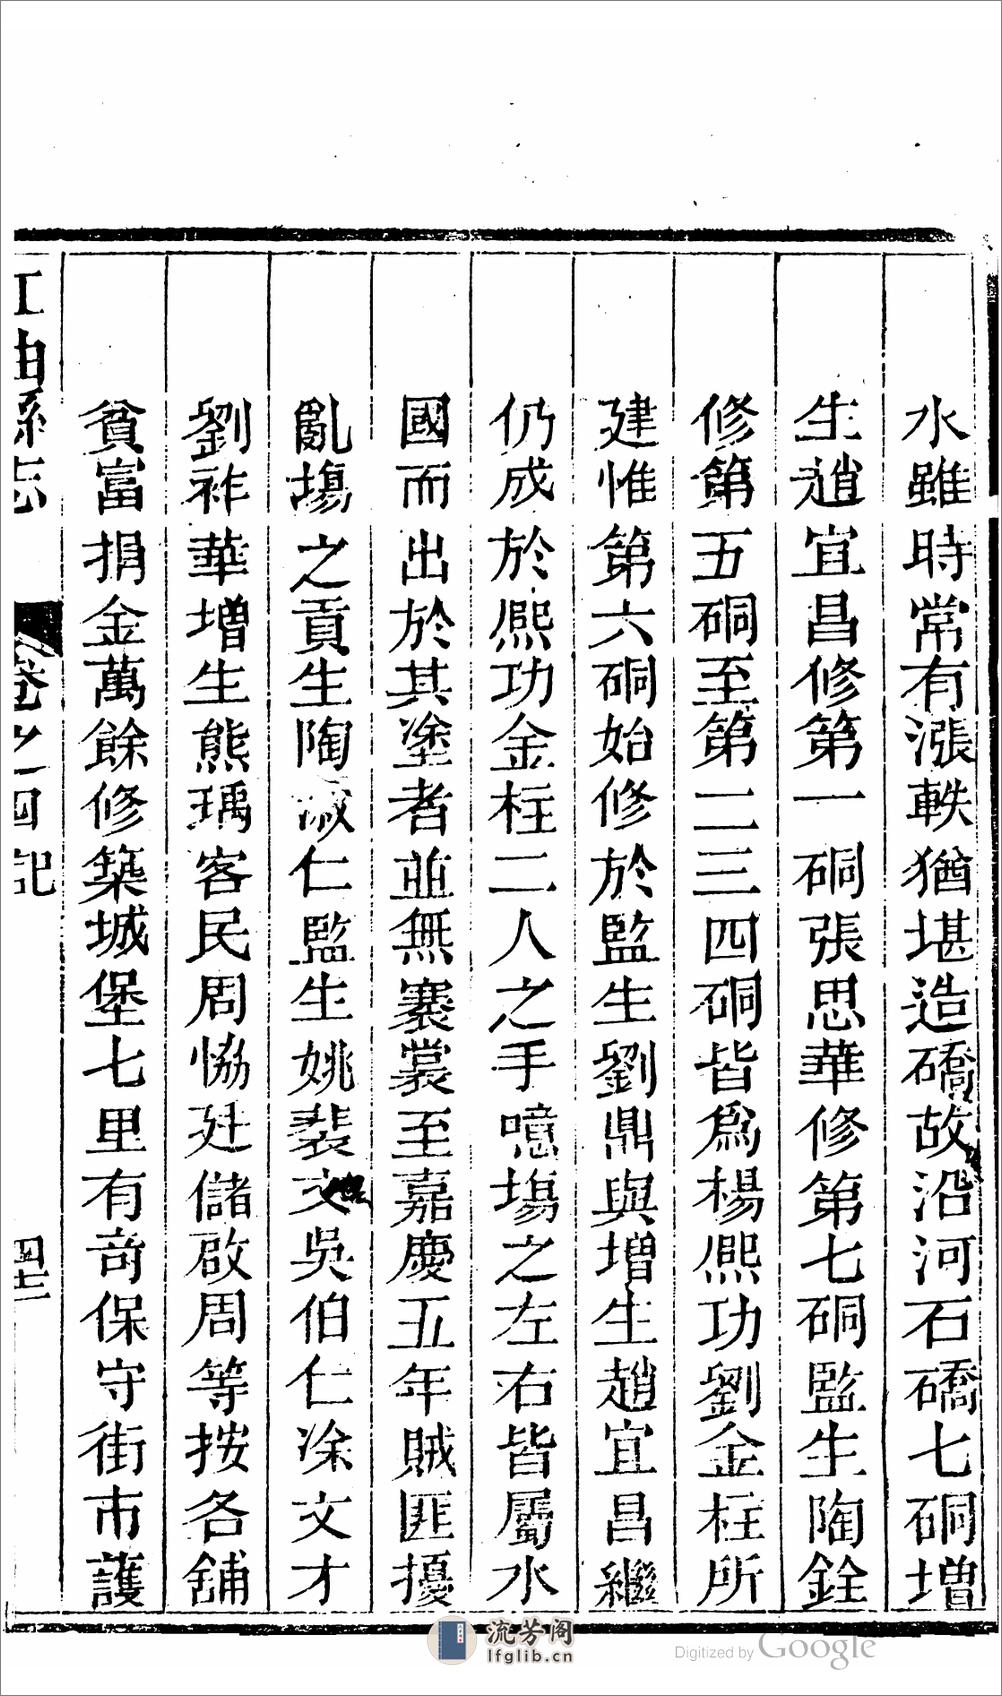 水雖時常有漲軼猶堪造礄故沿河石礄七硐增
生趙宜昌修第一硐張思華修第七硐監生陶銓
修第五硐至第二三四硐皆為楊熈功劉金柱所
建惟第六硐始修於監生劉鼎與增生趙宜昌繼
仍成於熈功金柱二人之手噫塲之左右皆屬水
國而出於其塗者並無褰裳至嘉慶五年賊匪擾
亂塲之貢生陶淑仁監生姚裴文吳伯仁凃文才
劉祚華增生熊瑀客民周恊廷儲啟周等按各舖
貧富捐金萬餘修築城堡七里有奇保守街市護
江油縣志 卷之四記 四七
流芳阁
lfglib.cn
Digitized by Google